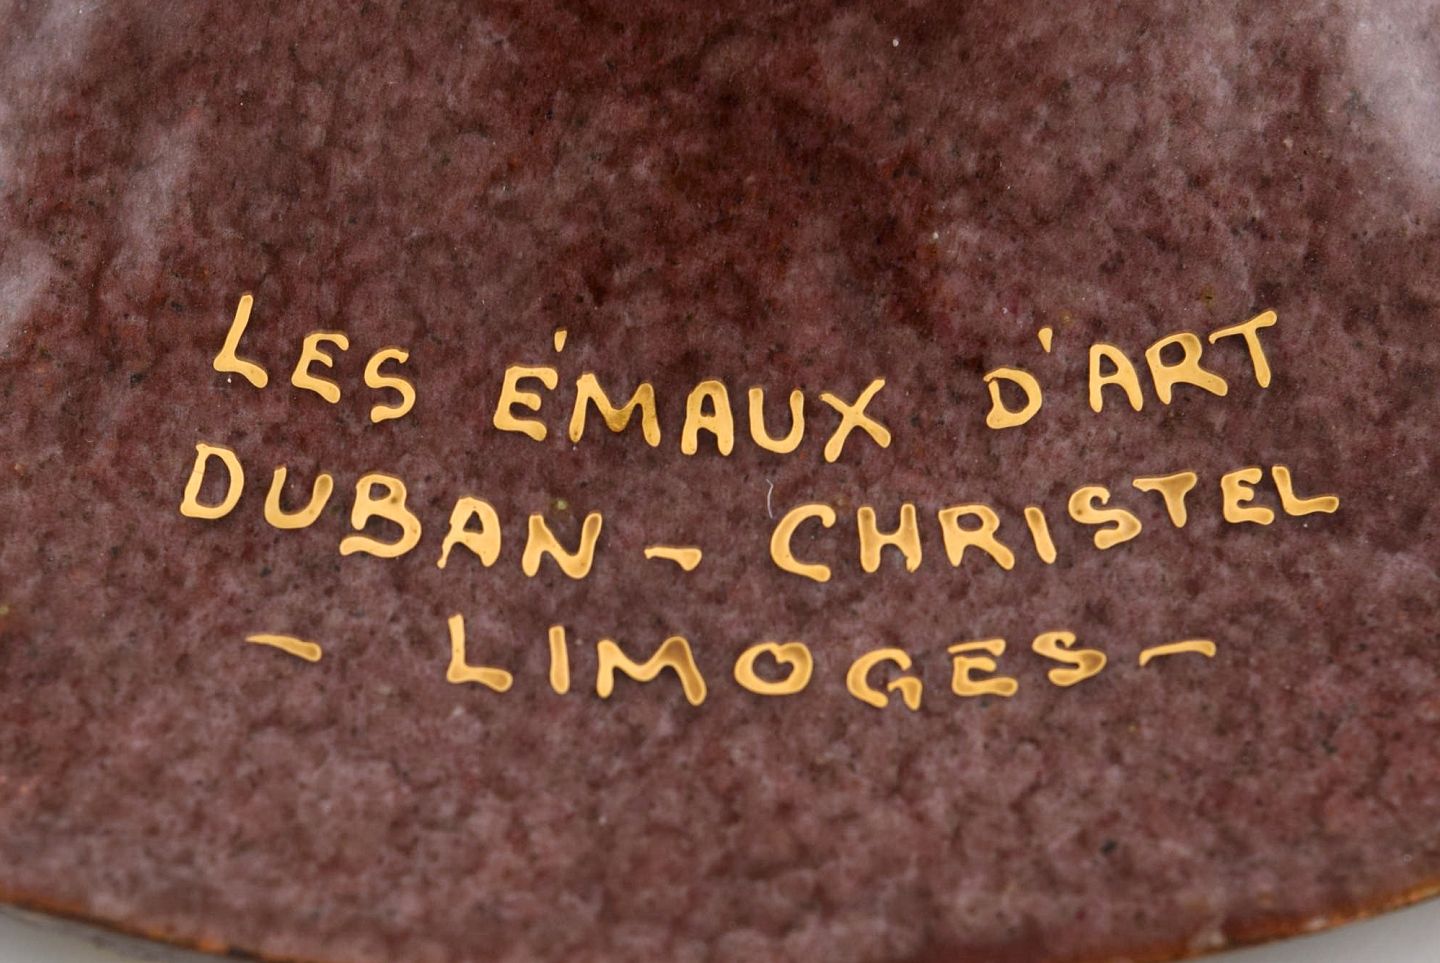 LES ÉMAUX D'ART
DUBAN - CHRISTEL
- LIMOGES -